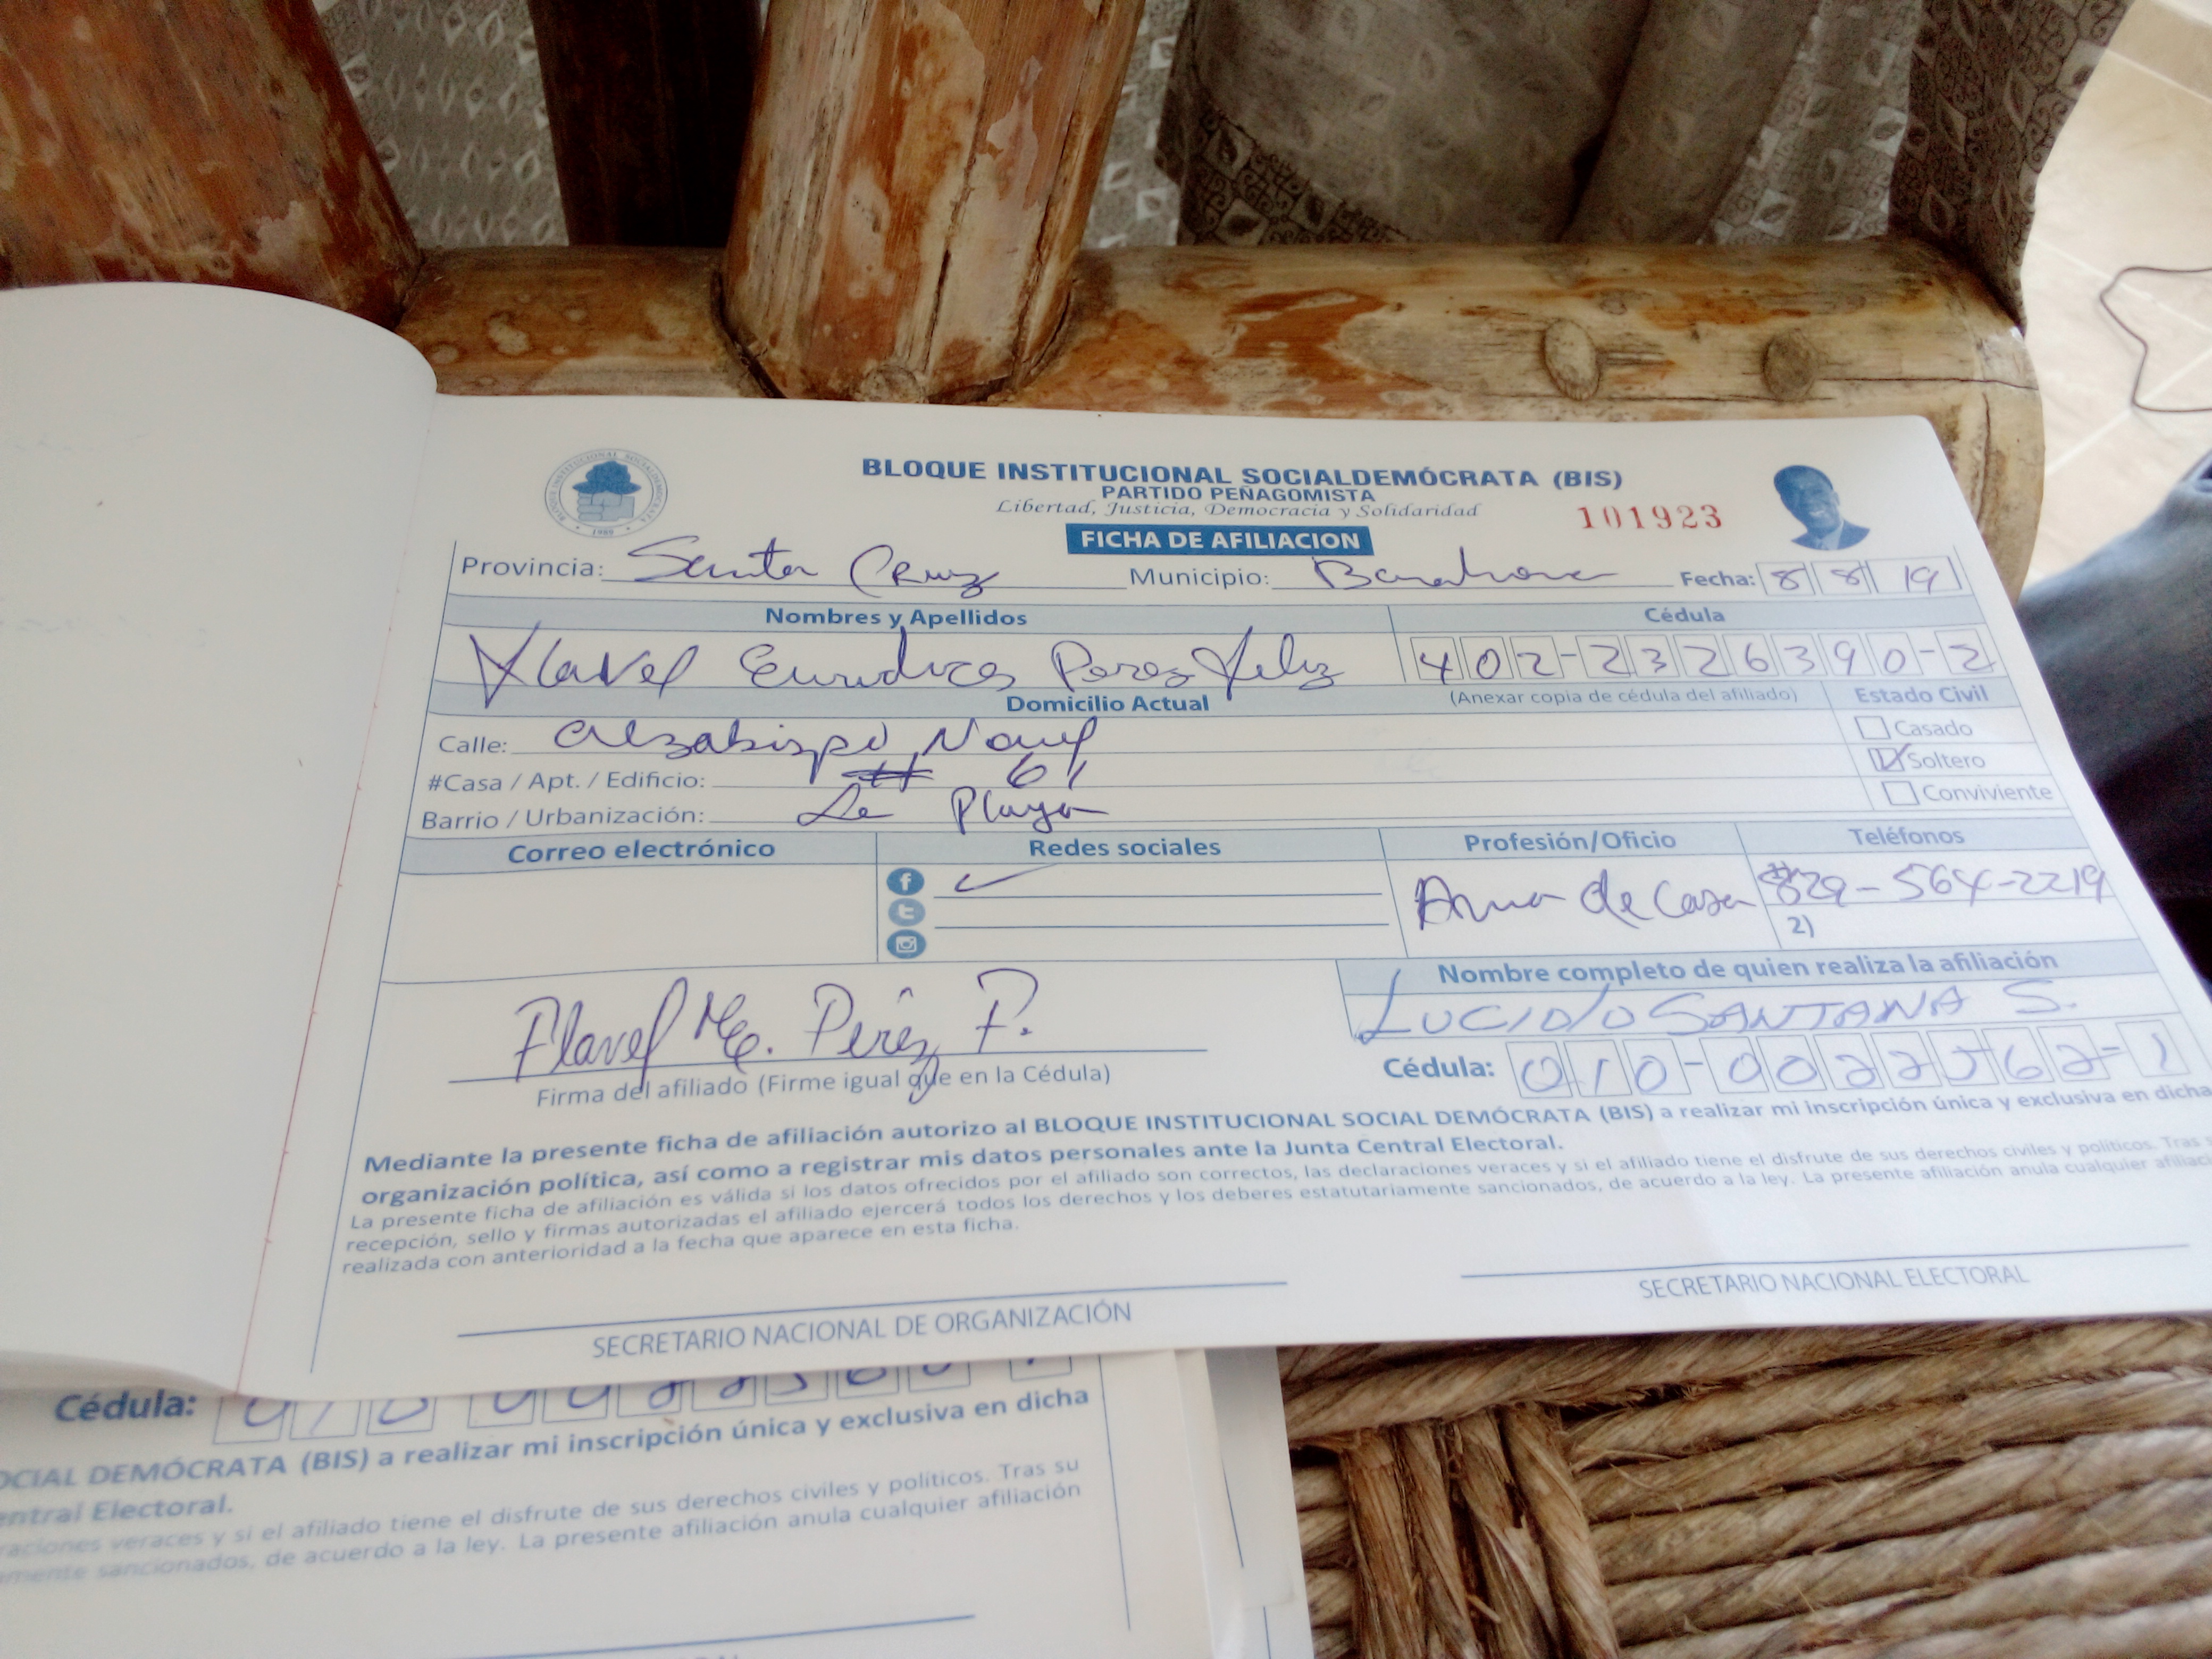 BLOQUE INSTITUCIONAL SOCIALDEMÓCRATA
1989
BLOQUE INSTITUCIONAL SOCIALDEMÓCRATA (BIS)
PARTIDO PEÑAGOMISTA
Libertad, Justicia, Democracia y Solidaridad
101923
FICHA DE AFILIACION
Provincia: Santa Cruz Municipio: Barahona Fecha: 8 8 19
Nombres y Apellidos Cédula
Flavel Perez Feliz 402-2326390-2
Domicilio Actual (Anexar copia de cédula del afiliado) Estado Civil
Calle: Nouel Casado
#Casa / Apt. / Edificio: # 61 Soltero
Barrio / Urbanización: La Playa Conviviente
Correo electrónico Redes sociales Profesión/Oficio Teléfonos
Ama de Casa 829-564-2219
2)
Nombre completo de quien realiza la afiliación
LUCIDIO SANTANA S.
Flavel Pérez F.
Firma del afiliado (Firme igual que en la Cédula)
Cédula: 010-0022562-1
Mediante la presente ficha de afiliación autorizo al BLOQUE INSTITUCIONAL SOCIAL DEMÓCRATA (BIS) a realizar mi inscripción única y exclusiva en dicha
organización política, así como a registrar mis datos personales ante la Junta Central Electoral.
La presente ficha de afiliación es válida si los datos ofrecidos por el afiliado son correctos, las declaraciones veraces y si el afiliado tiene el disfrute de sus derechos civiles y políticos. Tras
recepción, sello y firmas autorizadas el afiliado ejercerá todos los derechos y los deberes estatutariamente sancionados, de acuerdo a la ley. La presente afiliación anula cualquier
realizada con anterioridad a la fecha que aparece en esta ficha.
SECRETARIO NACIONAL DE ORGANIZACIÓN
SECRETARIO NACIONAL ELECTORAL
Cédula:
OCIAL DEMÓCRATA (BIS) a realizar mi inscripción única y exclusiva en dicha
entral Electoral.
raciones veraces y si el afiliado tiene el disfrute de sus derechos civiles y políticos. Tras su
amente sancionados, de acuerdo a la ley. La presente afiliación anula cualquier afiliación